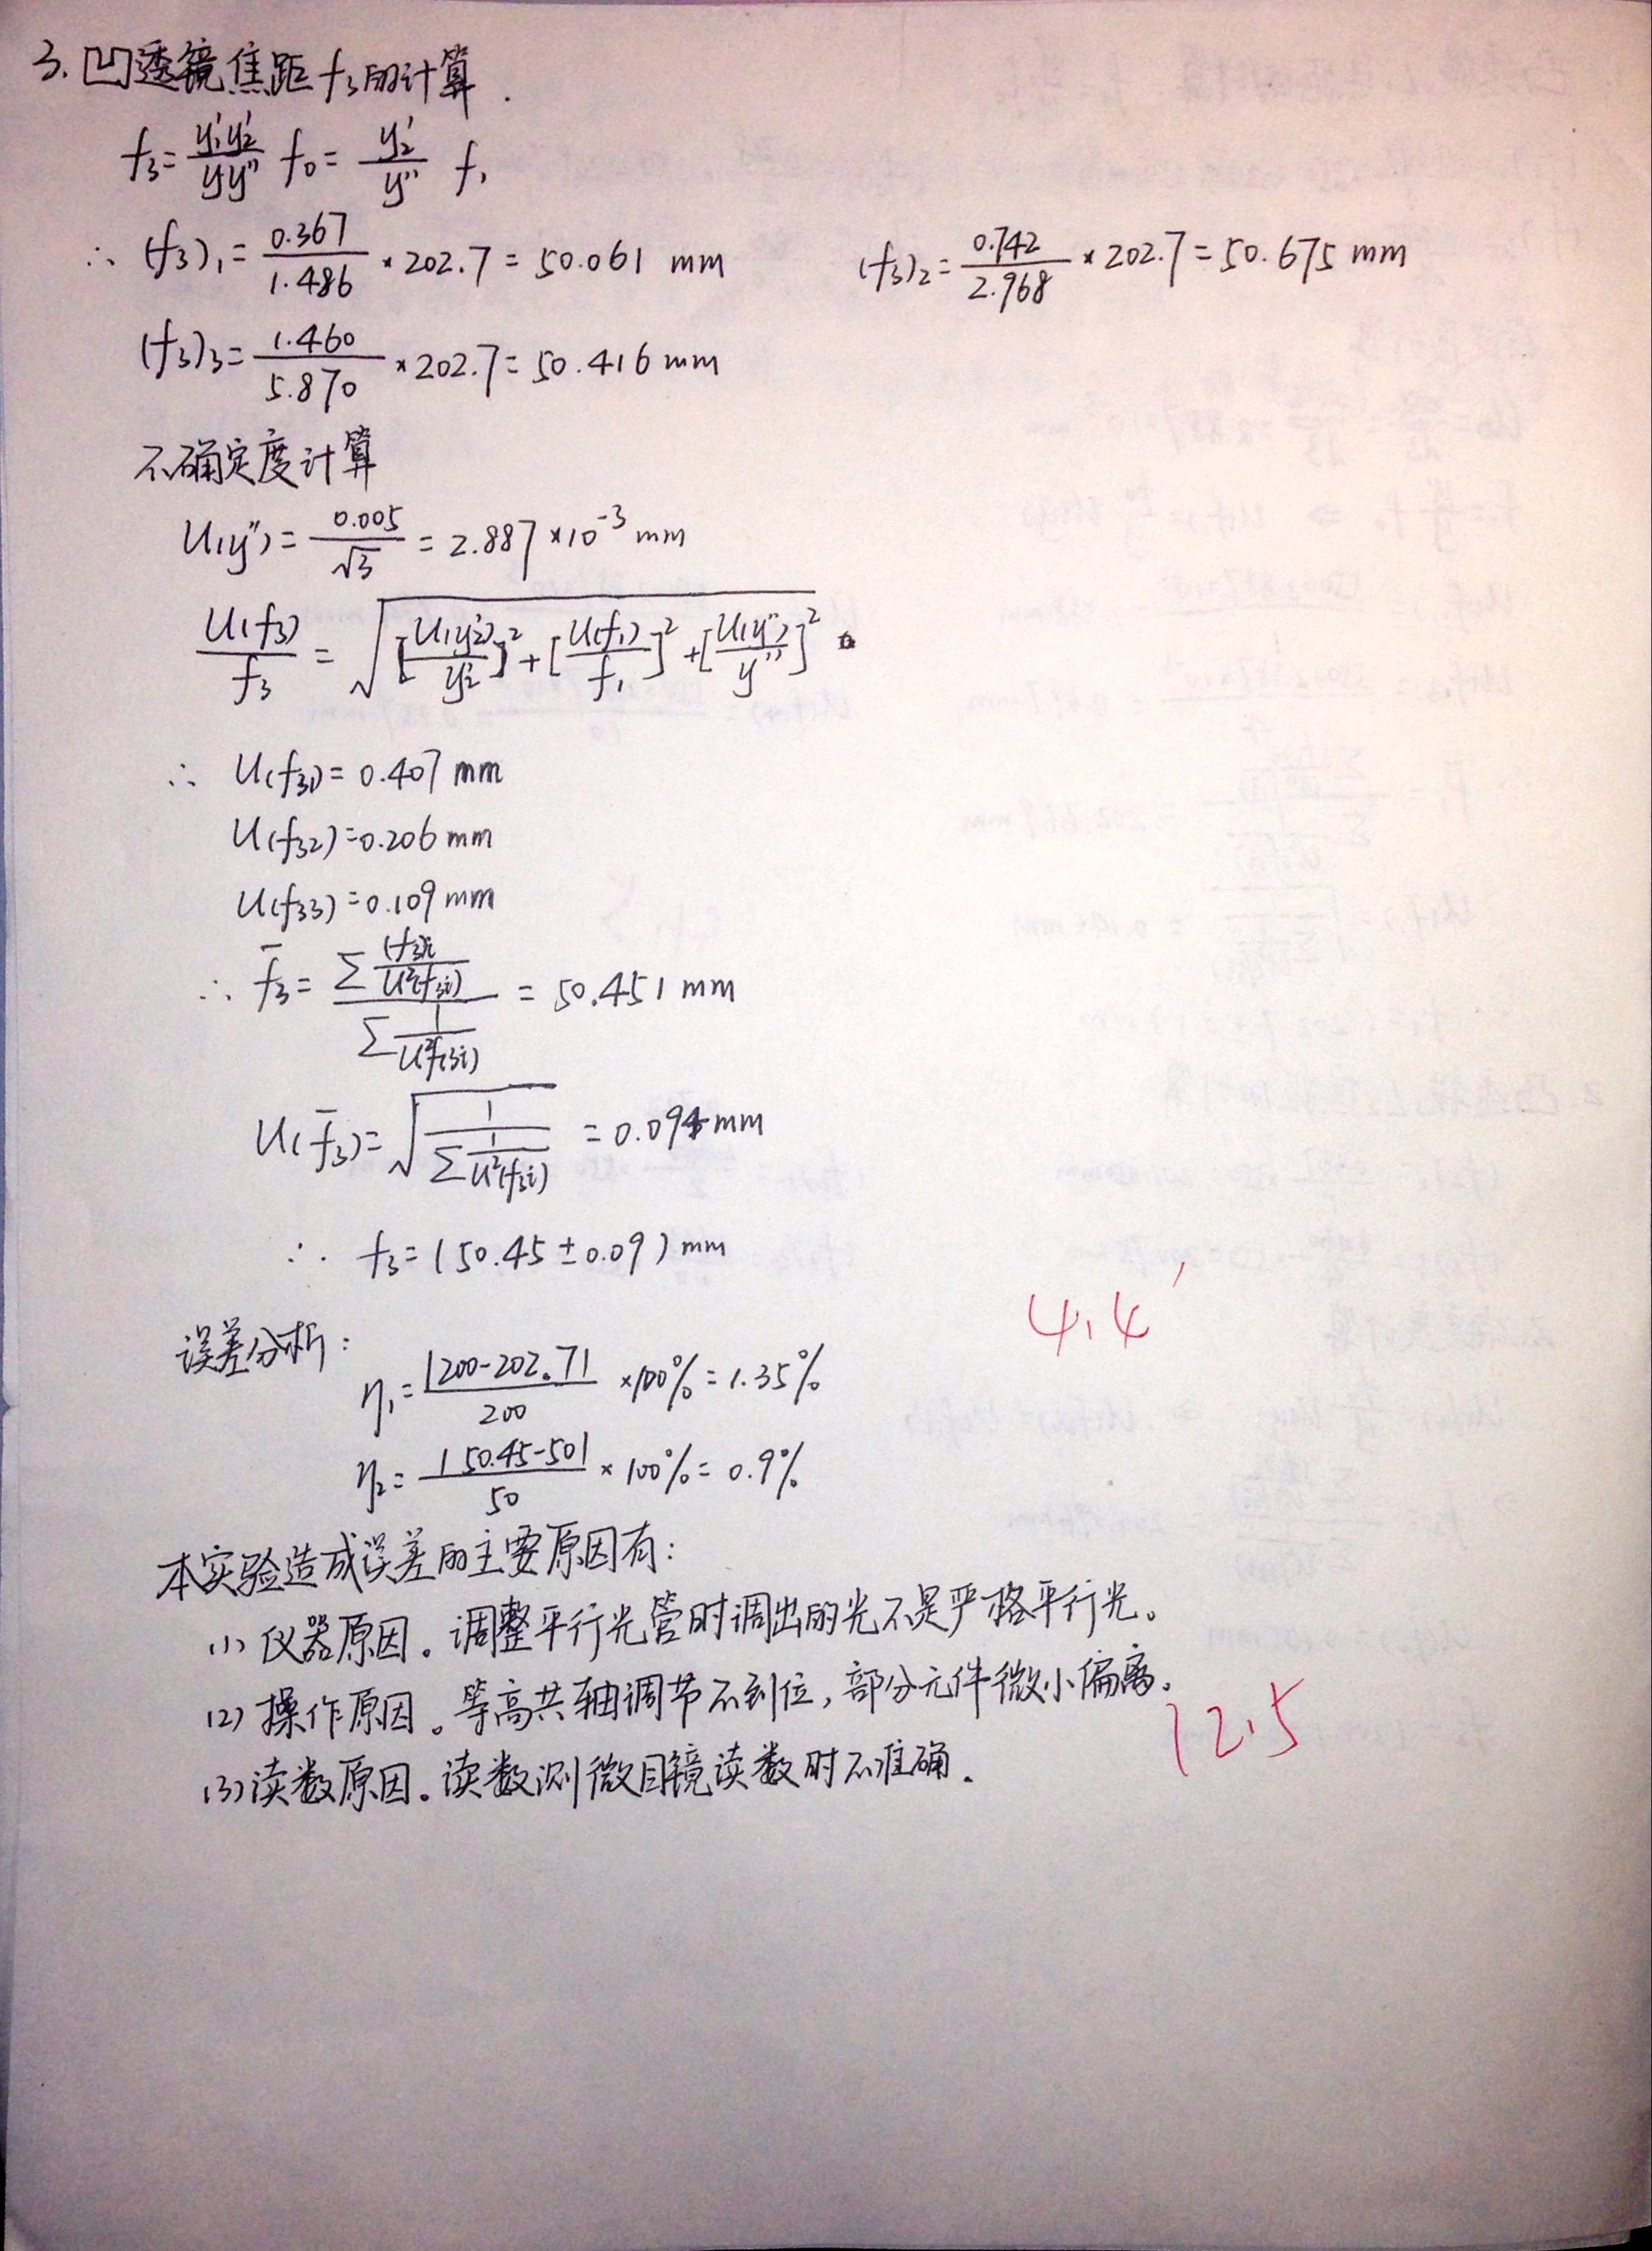 3. 凹透镜焦距 f₃的计算.
f₃ = (y₁'y₂')/(yy'') f₀ = y₂'/y'' f₁
∴ (f₃)₁ = 0.367/1.486 × 202.7 = 50.061 mm (f₃)₂ = 0.742/2.968 × 202.7 = 50.675 mm
(f₃)₃ = 1.460/5.870 × 202.7 = 50.416 mm
不确定度计算
U(y'') = 0.005/√3 = 2.887×10⁻³ mm
U(f₃)/f₃ = √([U(y₂')/y₂']² + [U(f₁)/f₁]² + [U(y'')/y'']²)
∴ U(f₃₁) = 0.407 mm
U(f₃₂) = 0.206 mm
U(f₃₃) = 0.109 mm
∴ f̄₃ = (Σ (f₃)i/U²(f₃i))/(Σ 1/U²(f₃i)) = 50.451 mm
U(f̄₃) = √(1/(Σ 1/U²(f₃i))) = 0.094 mm
∴ f₃ = (50.45 ± 0.09) mm
4.4'
误差分析:
η₁ = |200-202.7|/200 ×100% = 1.35%
η₂ = |50.45-50|/50 × 100% = 0.9%
本实验造成误差的主要原因有:
(1) 仪器原因。调整平行光管时调出的光不是严格平行光。
(2) 操作原因。等高共轴调节不到位,部分元件微小偏离。
12.5
(3) 读数原因。读数测微目镜读数时不准确.